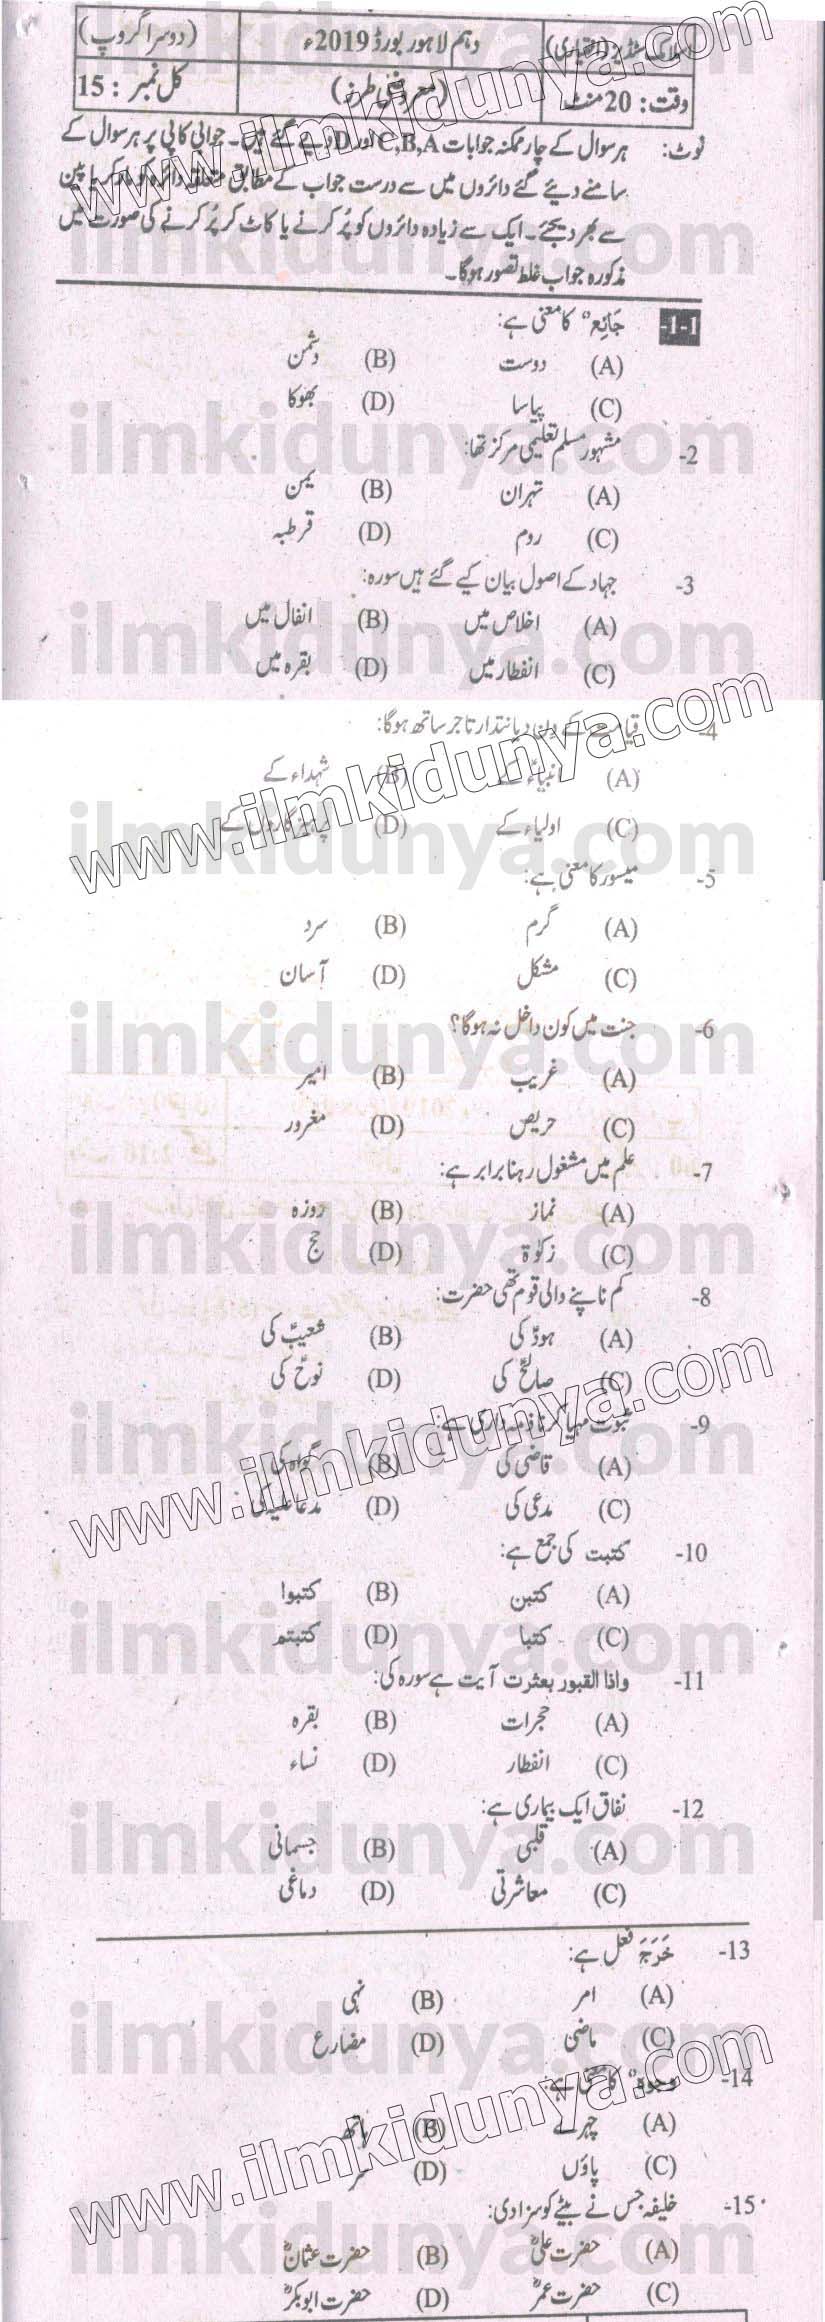 اسلامک سٹڈیز (اختیاری) دہم لاہور بورڈ 2019ء (دوسرا گروپ)
وقت : 20 منٹ (معروضی طرز) کل نمبر : 15
نوٹ: ہر سوال کے چار ممکنہ جوابات C,B,A اور D دیے گئے ہیں۔ جوابی کاپی پر ہر سوال کے
سامنے دیئے گئے دائروں میں سے درست جواب کے مطابق متعلقہ دائرہ کو مارکر یا پین
سے بھر دیجئے۔ ایک سے زیادہ دائروں کو پُر کرنے یا کاٹ کر پُر کرنے کی صورت میں
مذکورہ جواب غلط تصور ہوگا۔
1-1- جَائِع" کا معنی ہے:
(A) دوست (B) دشمن
(C) پیاسا (D) بھوکا
2- مشہور مسلم تعلیمی مرکز تھا:
(A) تہران (B) یمن
(C) روم (D) قرطبہ
3- جہاد کے اصول بیان کیے گئے ہیں سورہ:
(A) اخلاص میں (B) انفال میں
(C) انفطار میں (D) بقرہ میں
4- قیامت کے دن دیانتدار تاجر ساتھ ہوگا:
(A) انبیاءؑ کے (B) شہداء کے
(C) اولیاء کے (D) پرہیز گاروں کے
5- میسور کا معنی ہے:
(A) گرم (B) سرد
(C) مشکل (D) آسان
6- جنت میں کون داخل نہ ہوگا؟
(A) غریب (B) امیر
(C) حریص (D) مغرور
7- علم میں مشغول رہنا برابر ہے:
(A) نماز (B) روزہ
(C) زکوٰۃ (D) حج
8- کم ناپنے والی قوم تھی حضرت:
(A) ہودؑ کی (B) شعیبؑ کی
(C) صالحؑ کی (D) نوحؑ کی
9- ثبوت مہیا کرنا ذمہ داری ہے:
(A) قاضی کی (B) گواہ کی
(C) مدعی کی (D) مدعا علیہ کی
10- کتبت کی جمع ہے:
(A) کتبن (B) کتبوا
(C) کتبا (D) کتبتم
11- واذا القبور بعثرت آیت ہے سورہ کی:
(A) حجرات (B) بقرہ
(C) انفطار (D) نساء
12- نفاق ایک بیماری ہے:
(A) قلبی (B) جسمانی
(C) معاشرتی (D) دماغی
13- خَرَجَ فعل ہے:
(A) امر (B) نہی
(C) ماضی (D) مضارع
14- وجوہ" کا معنی ہے:
(A) چہرے (B) ہاتھ
(C) پاؤں (D) سر
15- خلیفہ جس نے بیٹے کو سزا دی:
(A) حضرت علیؓ (B) حضرت عثمانؓ
(C) حضرت عمرؓ (D) حضرت ابوبکرؓ
ilmkidunya.com
www.ilmkidunya.com